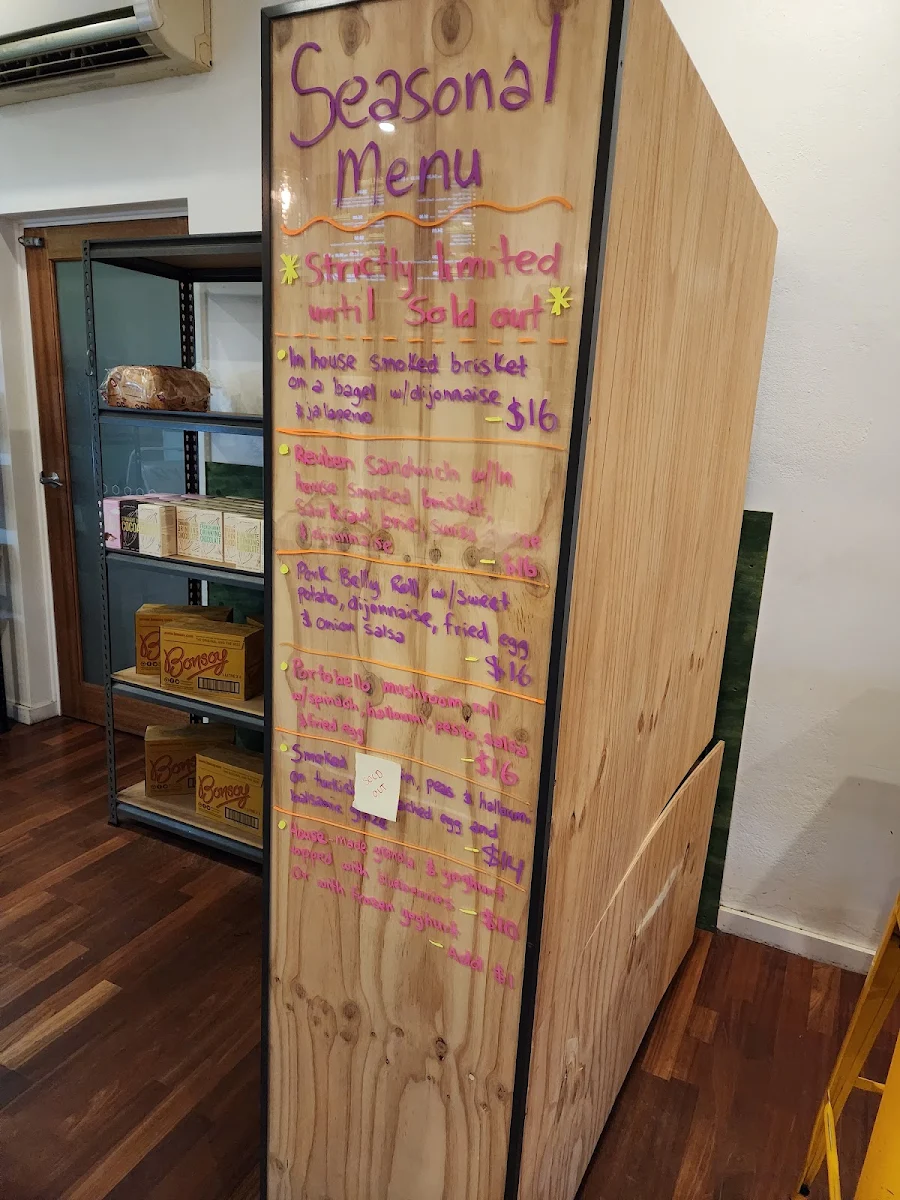 Seasonal
Menu
*Strictly limited
until Sold out*
In house smoked brisket
on a bagel w/dijonnaise
& jalapeno - $16
Reuben Sandwich w/In
house smoked brisket,
Saurkraut brine, swiss
& dijonnaise - $16
Pork Belly Roll w/sweet
potato, dijonnaise, fried egg
& onion salsa - $16
Portobello mushroom roll
w/spinach, halloumi, pesto, salsa
& fried egg - $16
Smoked peas & halloumi
on turkish egg and
balsamic glaze - $14
SOLD
OUT
House-made granola & yoghurt
topped with - $10
Or with frozen yoghurt
- Add $1
Bonsoy
Bonsoy
Bonsoy